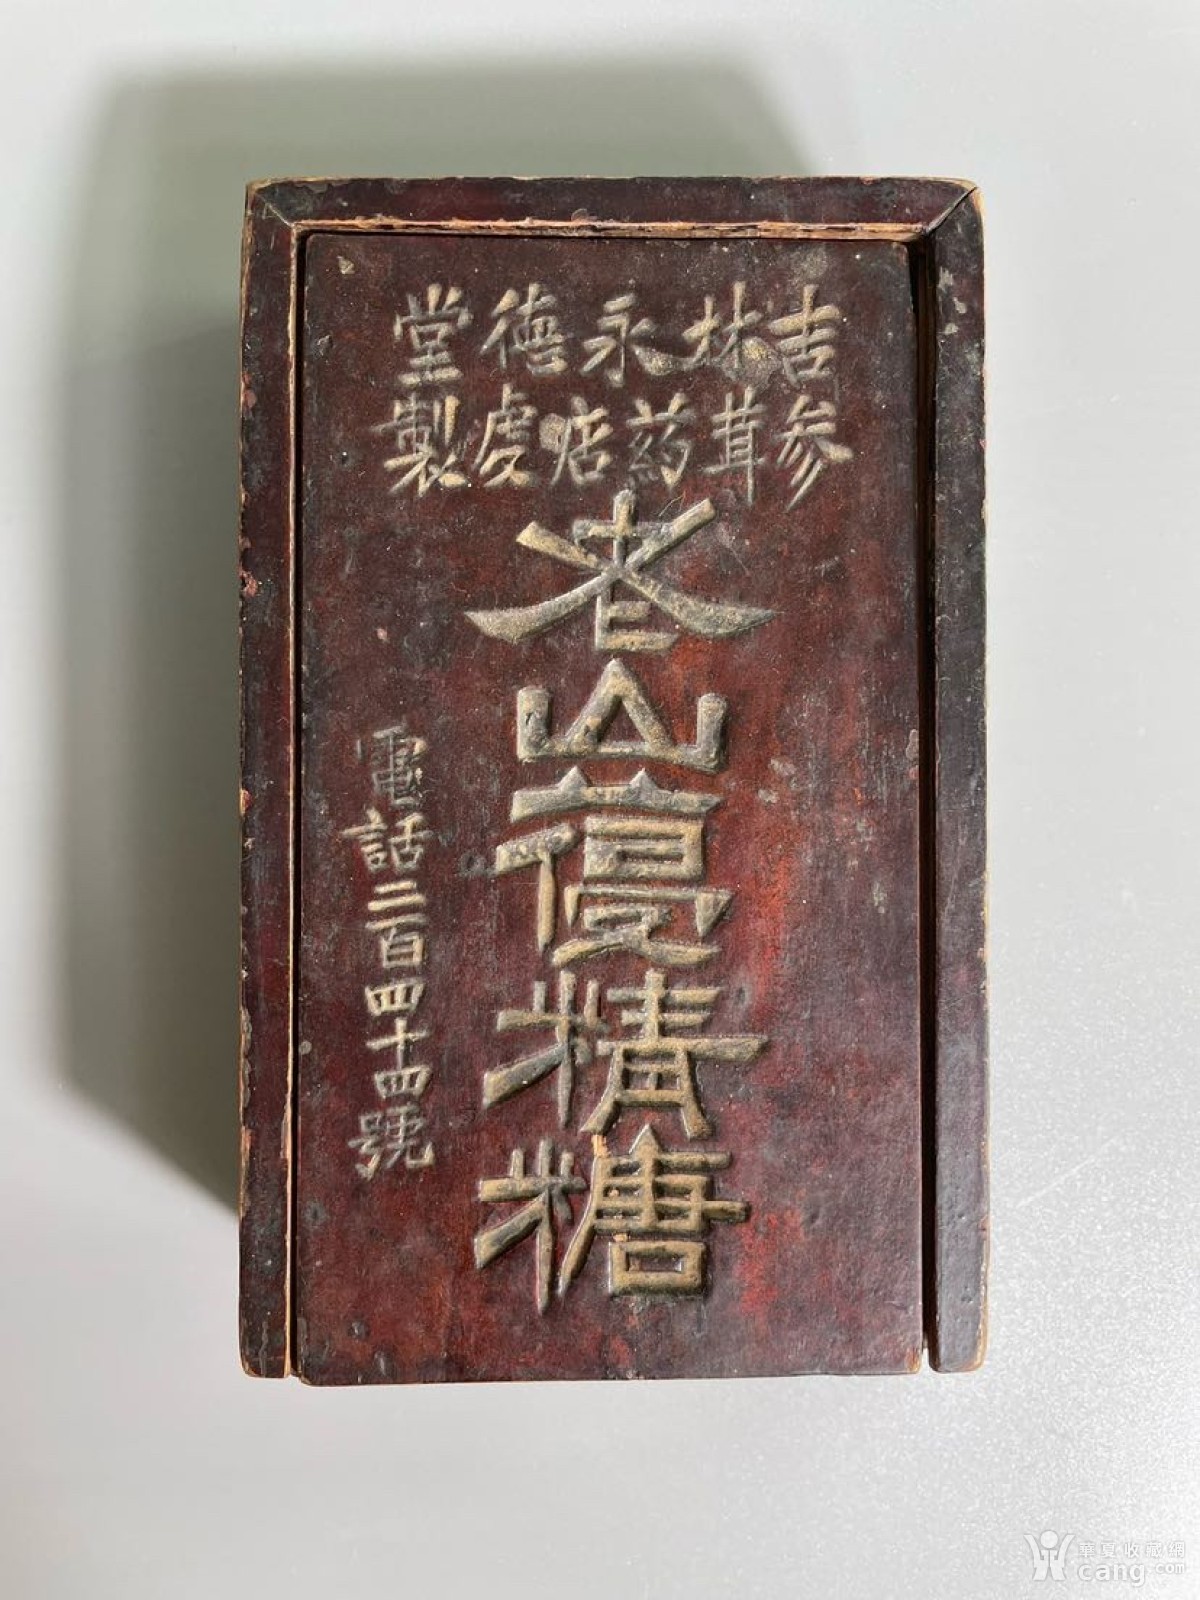 吉林永德堂
参茸葯店虔製
老山葠精糖
電話二百四十四號
華夏收藏網
cang.com